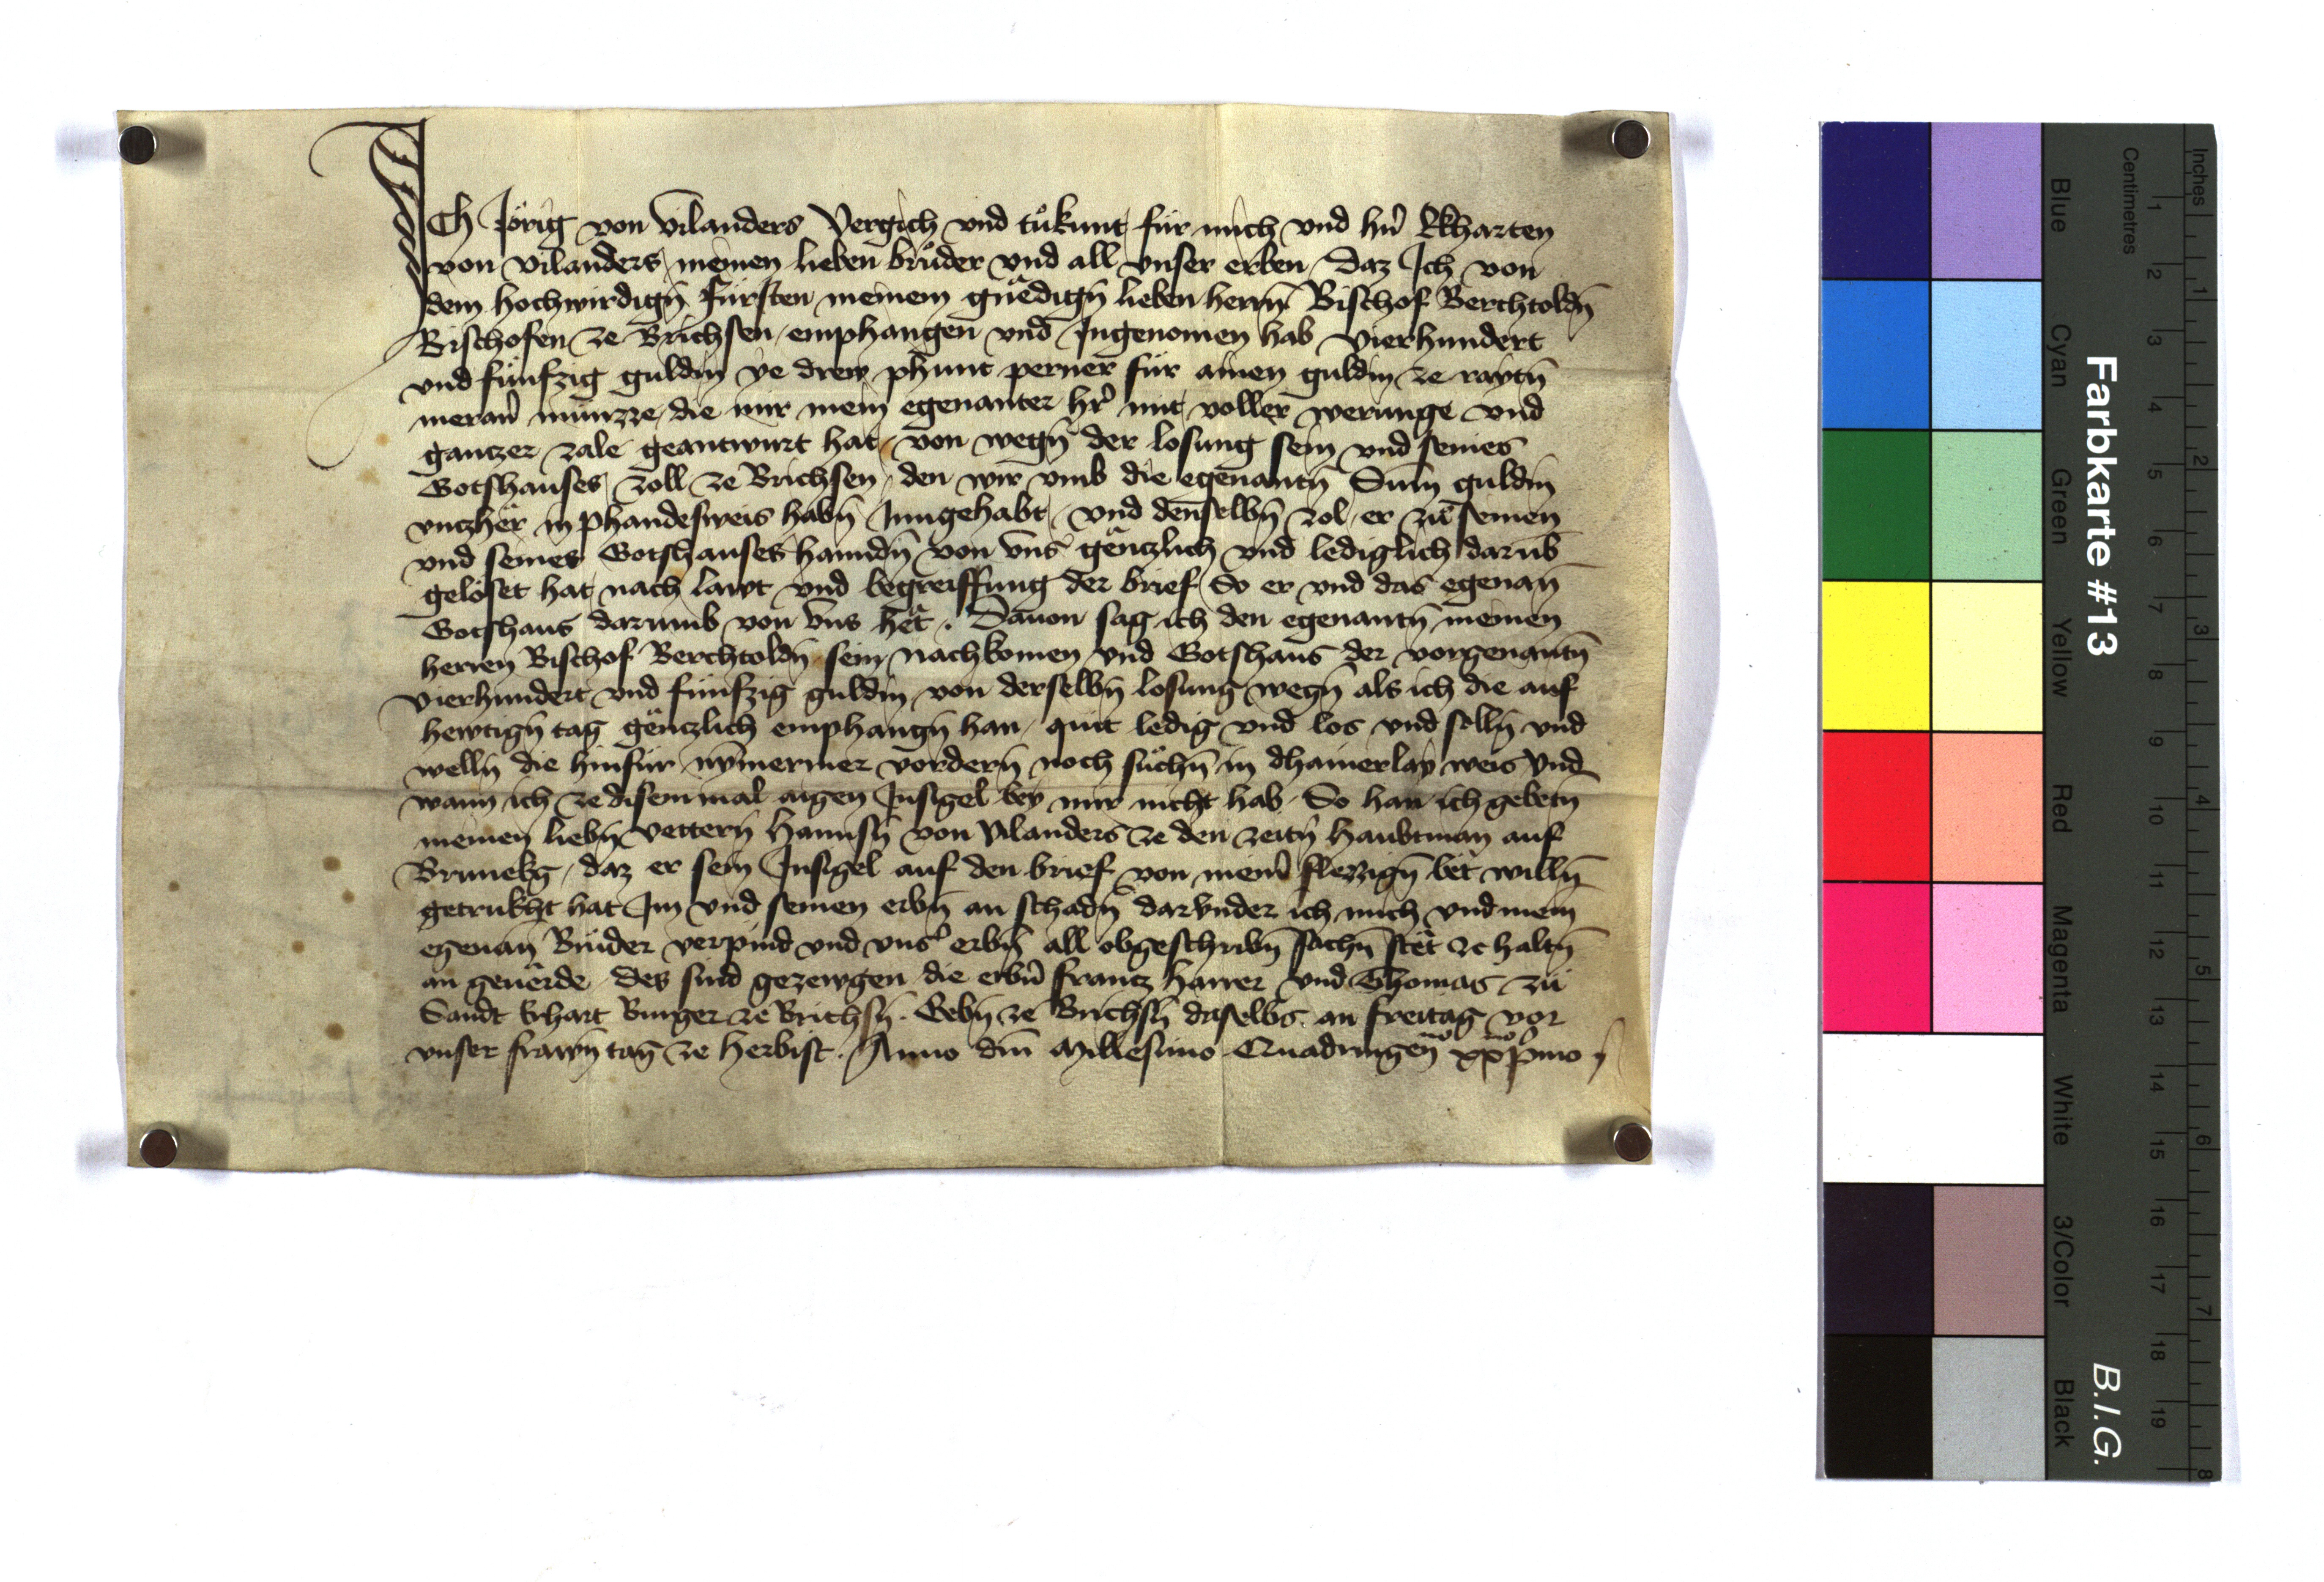 Ich Jörig von Vilanders Vergich vnd tůkunt für mich vnd hn̄ Ekharten
von Vilanders meinen lieben brůder vnd all vnser erben Daz Ich von
dem hochwirdign̄ fürsten meinem gnedign̄ lieben herrn̄ Bischof Berchtoldn̄
Bischofen ze Brichsen emphangen vnd Ingenomen hab vierhundert
vnd fünfzig guldin ye drew phunt perner für ainen guldin ze raytn̄
meran̄ münzze die mir mein egenanter hr̄ mit voller werunge vnd
gantzer zale geantwurt hat von wegn̄ der losung sein vnd seines
Gotshauses zoll ze Brichsen den wir vmb die egenantn̄ Sum̄ guldin
vntzher in phandesweis habn̄ Inngehabt vnd denselbn̄ zol er zu seinen
vnd seines Gotshauses hanndn̄ von vns gentzlich vnd lediglich darub̄
gelöset hat nach lawt vnd begreiffung der brief So er vnd das egenan̄
Gotshaus darumb von vns het. Dauon sag ich den egenantn̄ meinen
herren Bischof Berchtoldn̄ sein nachkomen vnd Gotshaus der vorgenantn̄
vierhundert vnd fünfzig guldin von derselbn̄ losung wegn̄ als ich die auf
hewtign̄ tag gentzlich emphangn̄ han quit ledig vnd los vnd solln̄ vnd
welln̄ die hinfür nym̄ermer vordern̄ noch süchn̄ in dhainerlay weis Vnd
wann ich ze disem mal aigen Insigel bey mir nicht hab So han ich gebetn̄
meinen liebn̄ vettern̄ Hannsn̄ von Vilanders ze den zeitn̄ Haubtman auf
Brunekg daz er sein Insigel auf den brief von mein̄ fleizzign̄ bet willn̄
getrukht hat Im vnd seinen erbn̄ an schadn̄ darvnder ich mich vnd mein
egenan̄ Brüder verpind vnd vns̄ erbn̄ all obgeschribn̄ sachn̄ stet ze haltn̄
an geuerde des sind gezewgen die erbn̄ Frantz Harrer vnd Thomas zu
Sandt Erhart Burger ze Brichsn̄. Gebn̄ ze Brichsn̄ daselbs an freitag vor
vnser frawn̄ tag ze herbist. Anno dm̄ Millesimo Quadringen̄